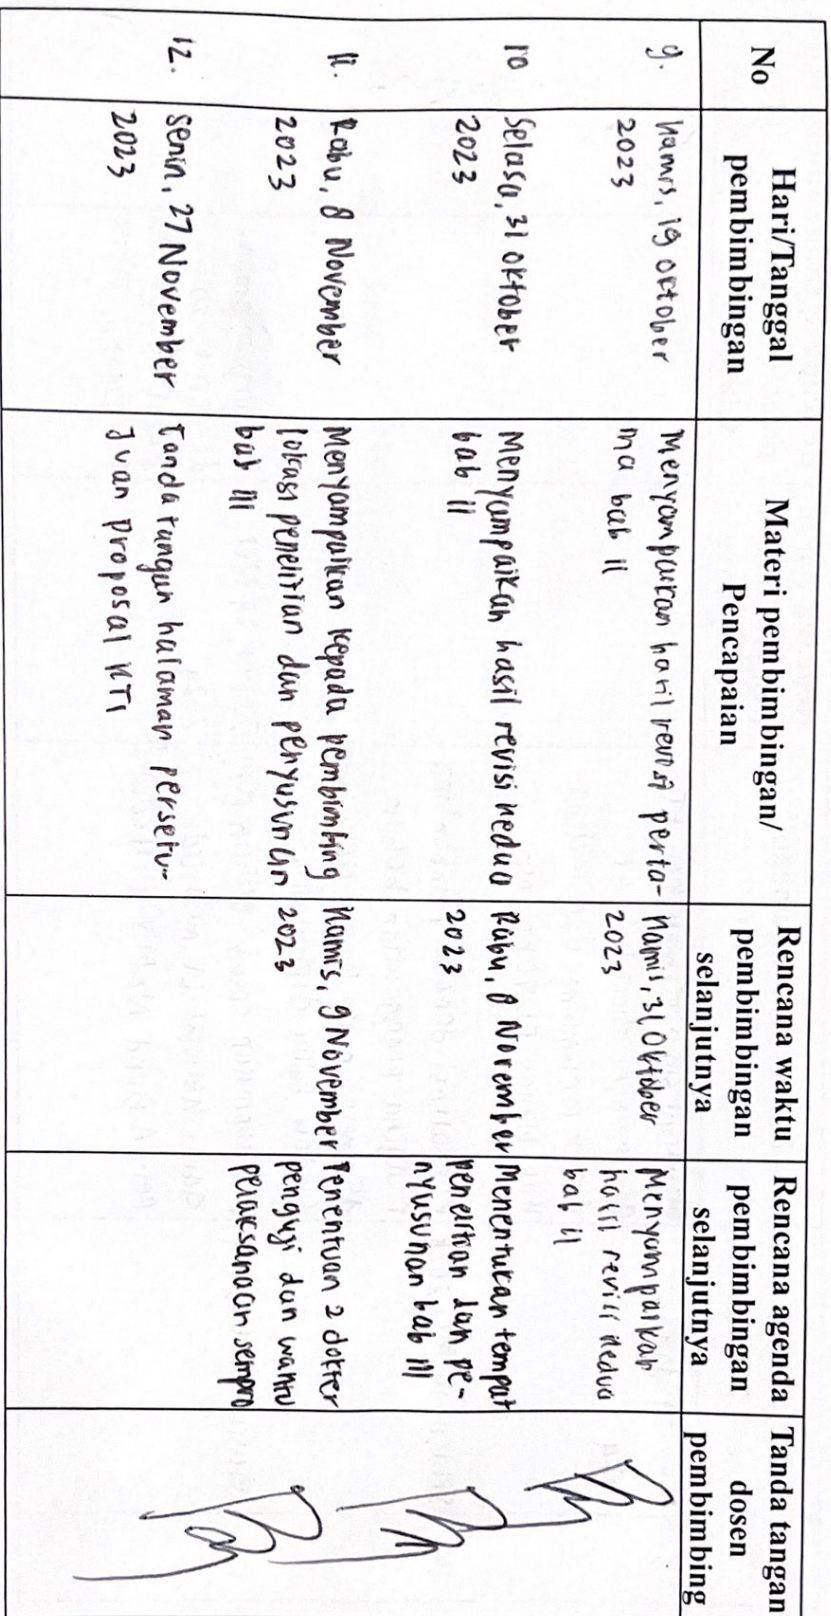 No
Hari/Tanggal
pembimbingan
Materi pembimbingan/
Pencapaian
Rencana waktu
pembimbingan
selanjutnya
Rencana agenda
pembimbingan
selanjutnya
Tanda tangan
dosen
pembimbing
9.
Kamis, 19 Oktober
2023
Menyampaikan hasil revisi perta-
ma bab II
Kamis, 31 Oktober
2023
Menyampaikan
hasil revisi kedua
bab II
10
Selasa, 31 Oktober
2023
Menyampaikan hasil revisi kedua
bab II
Rabu, 8 November
2023
Menentukan tempat
penelitian dan pe-
nyusunan bab III
11.
Rabu, 8 November
2023
Menyampaikan kepada pembimbing
lokasi penelitian dan penyusunan
bab III
Kamis, 9 November
2023
Penentuan 2 dokter
penguji dan waktu
pelaksanaan sempro
12.
Senin, 27 November
2023
Tanda tangan halaman persetu-
juan proposal KTI